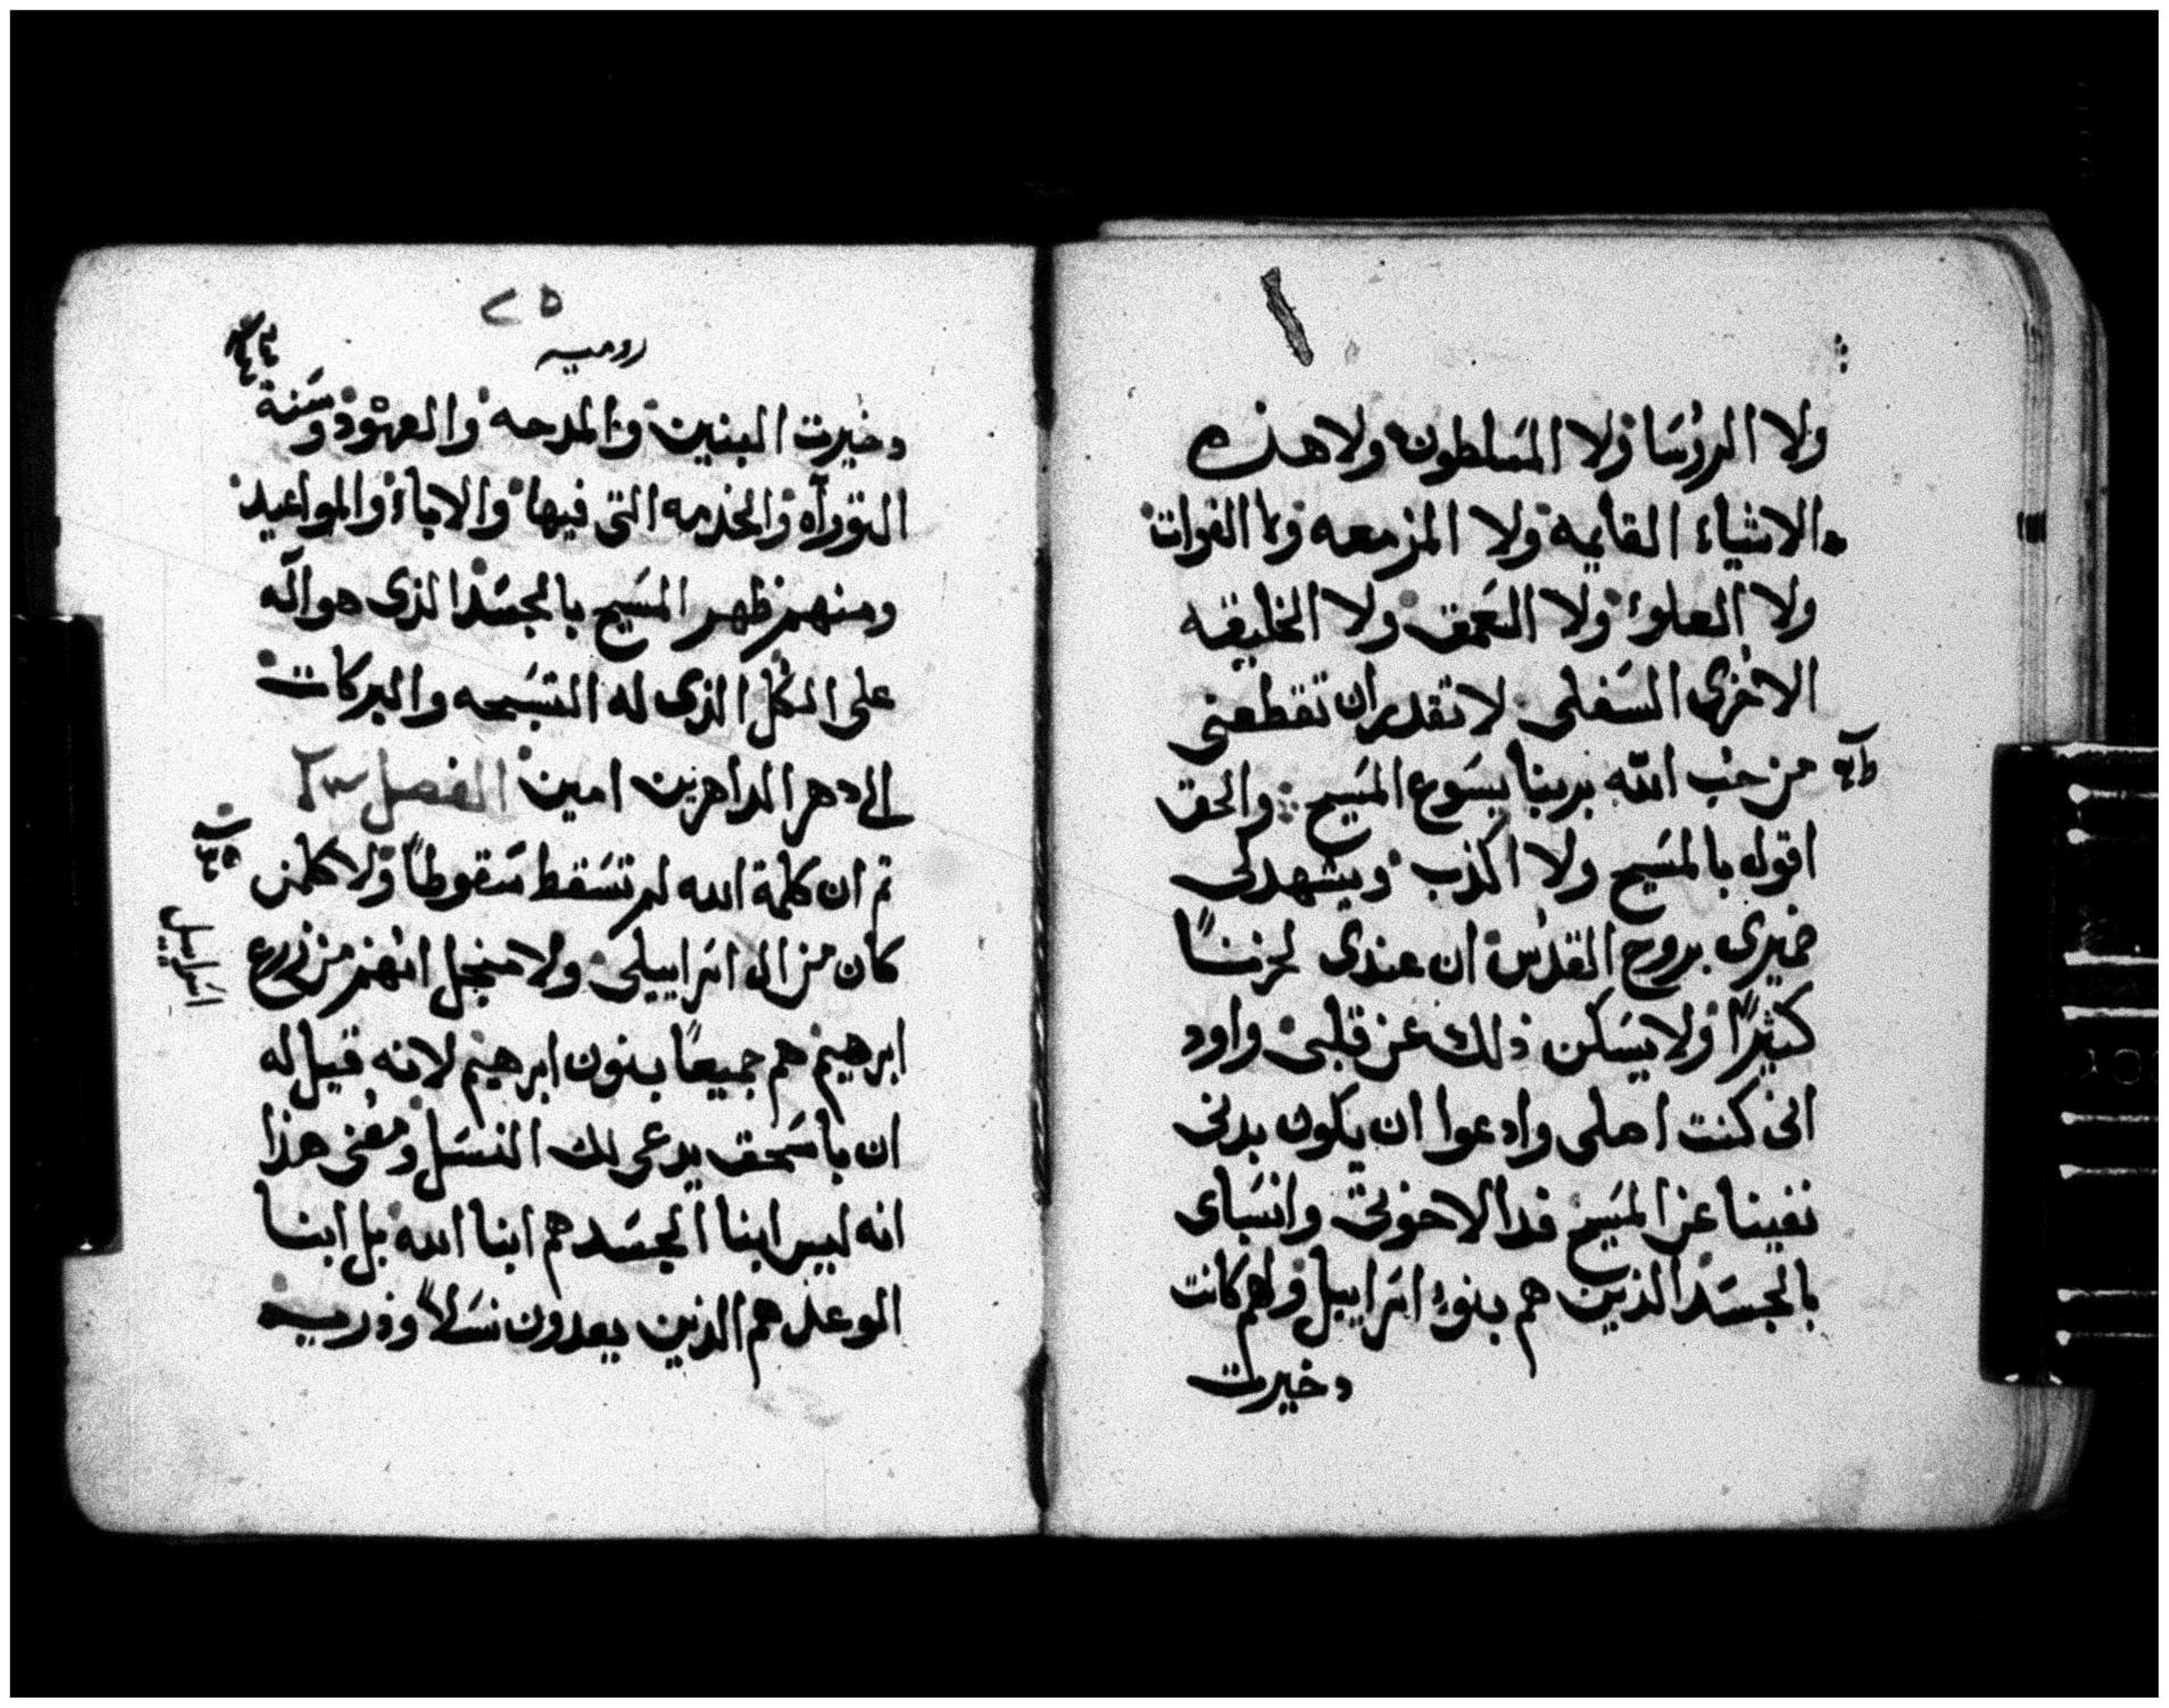 ولا الروسَا ولا المسَلطون ولا هذه
الاشياء القايمه ولا المزمعه ولا القوات
ولا العلو ولا العَمق ولا الخليقه
الاخرى السَفلى لا تقدر ان تقطعنى
من حب الله بربنا يسَوع المسَيح والحق
اقول بالمسَيح ولا اكذب ويشهد لى
ضميرى بروح القدس ان عندى لحزنًا
كثيرًا ولا يسَكن ذلك عن قلبى واود
انى كنت اصلى وادعوا ان يكون بدنى
نفينا عن المسَيح فدا لاخوتى وانسَباى
بالجسَد الذين هم بنو اسَراييل ولهم كانت
دخيرت
٢٥
روميه
دخيرت البنين والمدحه والعهود وسَنة
التوراه والخدمه التى فيها والاباء والمواعيد
ومنهم ظهر المسَيح بالجسَد الذى هو اله
على الكل الذى له التسَبحه والبركات
الى دهر الداهرين امين الفصل
ثم ان كلمة الله لم تسَقط سَقوطاً ولا كلمن
كان من ال اسَراييلى ولا منجل انهم من زرع
اسَراييل
ابرهيم هم جميعاً بنون ابرهيم لانه قيل له
ان باسَحق يدعى لك النسَل ومعنى هذا
انه ليس ابنا الجسَد هم ابنا الله بل ابنا
الوعد هم الذين يعدون نسَلاً وذريه